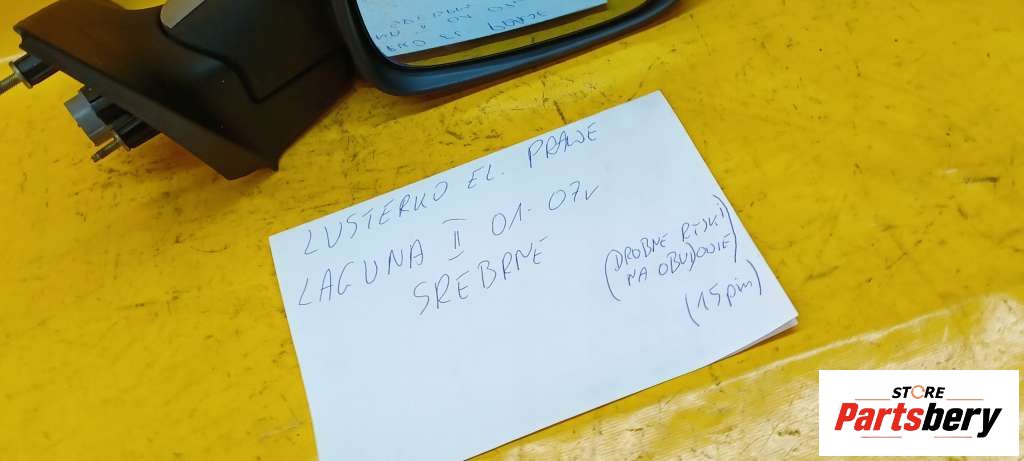 LUSTERKO EL. PRAWE
LAGUNA II 01-07r
SREBRNE
(DROBNE RYSKI
NA OBUDOWIE)
(15pin)
STORE
Partsbery